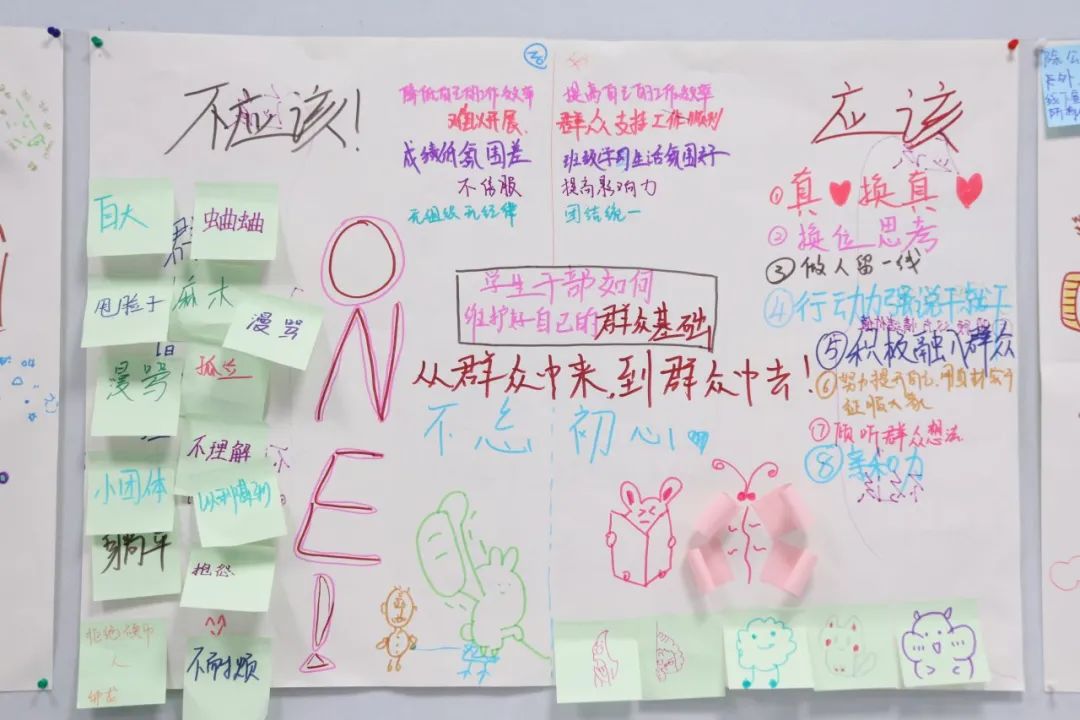 不应该!
降低自己的工作效率
难以开展
成绩低氛围差
不信服
无组织无纪律
提高自己的工作效率
群众支持工作顺利
班级学习生活氛围好
提高影响力
团结统一
应该
①真♥换真♥
②换位思考
③做人留一线
④行动力强说干就干
⑤积极融入群众
⑦倾听群众想法
⑧亲和力
学生干部如何
维护好自己的群众基础
从群众中来,到群众中去!
不忘初心
ONE!
自大
蛐蛐
甩脸子
麻木
漫骂
漫骂
孤立
小团体
不理解
抱怨
不耐烦